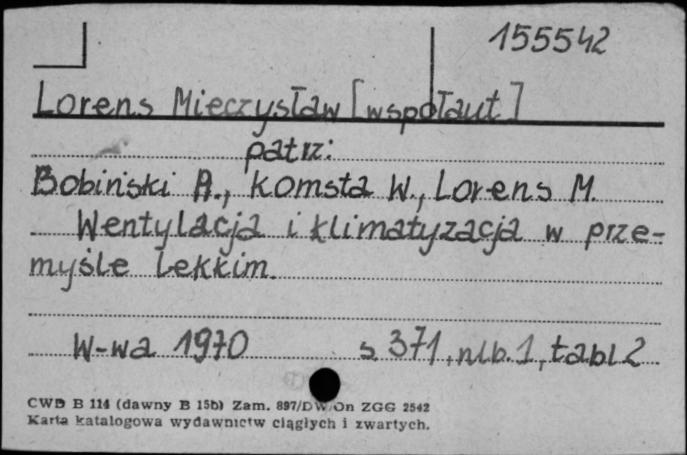 155542
Lorens Mieczysław [wspołaut]
patrz:
Bobiński A., Komsta W., Lorens M.
Wentylacja i klimatyzacja w prze-
myśle lekkim.
W-wa 1970 s 371, nlb. 1, tabl 2
CWD B 114 (dawny B 15b) Zam. 897/DW/On ZGG 2542
Karta katalogowa wydawnictw ciągłych i zwartych.